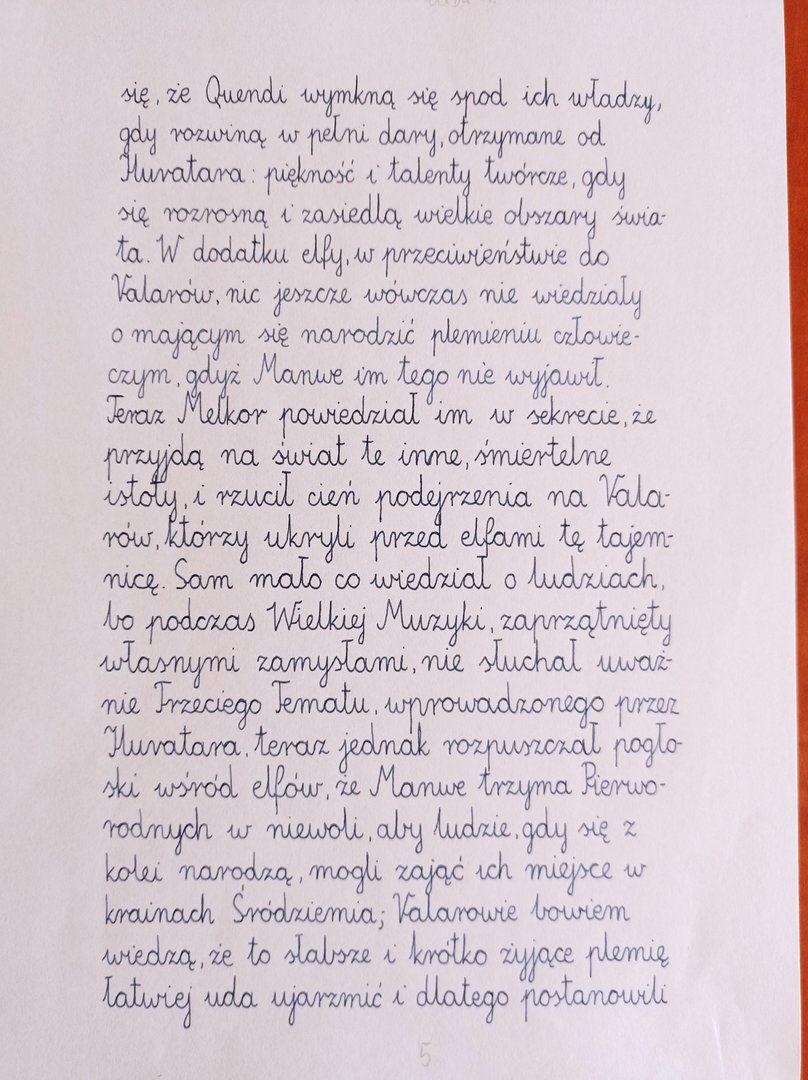 się, że Quendi wymkną się spod ich władzy,
gdy rozwiną w pełni dary, otrzymane od
Iluvatara: piękność i talenty twórcze, gdy
się rozrosną i zasiedlą wielkie obszary świa-
ta. W dodatku elfy, w przeciwieństwie do
Valarów, nic jeszcze wówczas nie wiedziały
o mającym się narodzić plemieniu człowie-
czym, gdyż Manwe im tego nie wyjawił.
Teraz Melkor powiedział im w sekrecie, że
przyjdą na świat te inne, śmiertelne
istoty, i rzucił cień podejrzenia na Vala-
rów, którzy ukryli przed elfami tę tajem-
nicę. Sam mało co wiedział o ludziach,
bo podczas Wielkiej Muzyki, zaprzątnięty
własnymi zamysłami, nie słuchał uważ-
nie Trzeciego Tematu, wprowadzonego przez
Iluvatara, teraz jednak rozpuszczał pogło-
ski wśród elfów, że Manwe trzyma Pierwo-
rodnych w niewoli, aby ludzie, gdy się z
kolei narodzą, mogli zająć ich miejsce w
krainach Śródziemia; Valarowie bowiem
wiedzą, że to słabsze i krótko żyjące plemię
łatwiej uda ujarzmić i dlatego postanowili
5